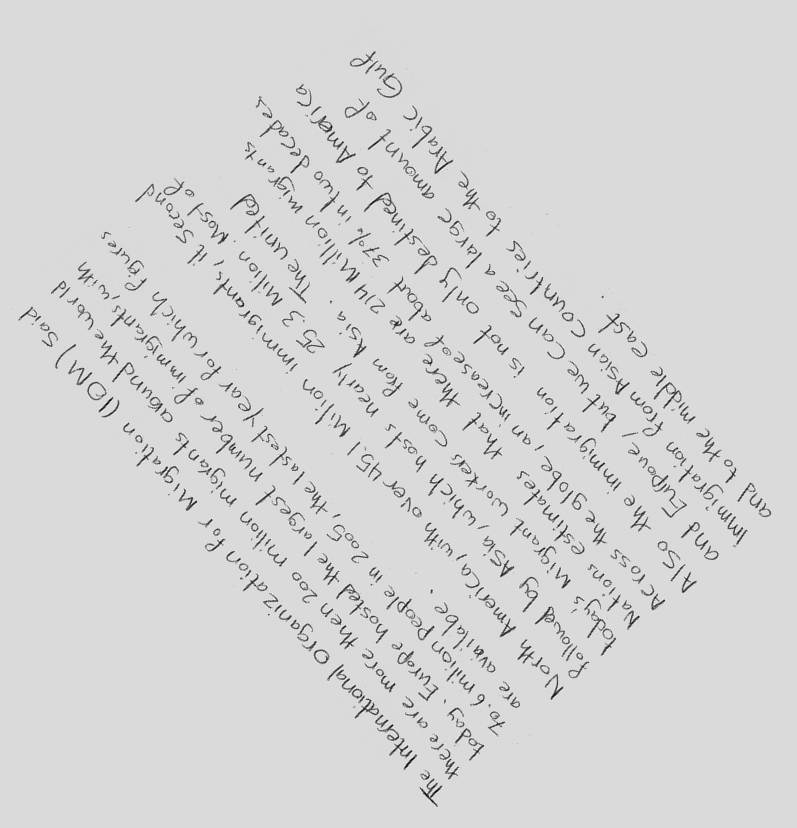 The International Organization for Migration (IOM) Said
there are more then 200 million migrants around the world
today. Europe hosted the largest number of immigrants, with
70.6 million People in 2005, the lastest year for which figures
are availabe.
North America, with over 45.1 Million immigrants, it second
followed by Asia, which hosts nearly 25.3 Million. Most of
today's Migrant workers come from Asia. The united
Nations estimates that there are 214 Million migrants
Across the globe, an increase of about 37% in two decades.
Also the immigration is not only destined to America
and Eurpoue, but we can see a large amount of
Immigration from Asian countries to the Arabic Gulf
and to the middle east.